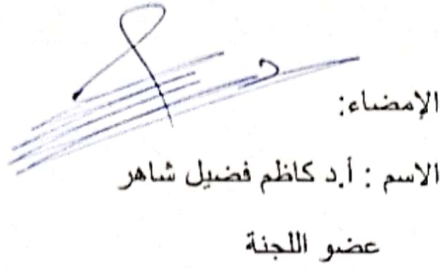 الإمضاء:
الاسم : أ.د كاظم فضيل شاهر
عضو اللجنة